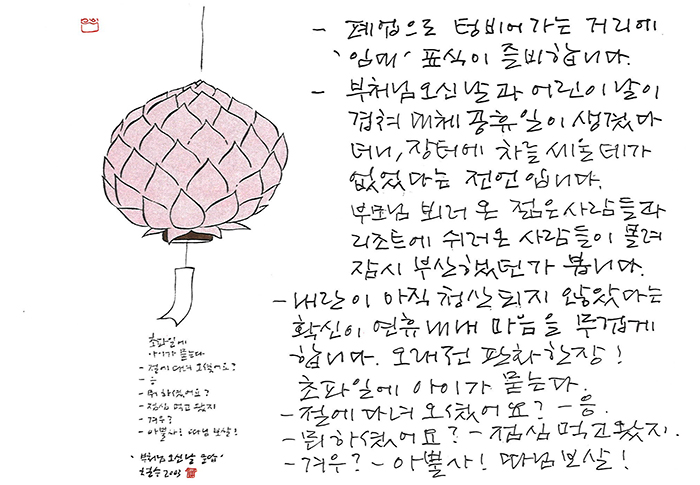 - 폐업으로 텅비어가는 거리에
'임대' 표식이 즐비합니다.
- 부처님오신날과 어린이날이
겹쳐 대체 공휴일이 생겼다
더니, 장터에 차를 세울 데가
없었다는 전언입니다.
부모님 뵈러 온 젊은사람들과
리조트에 쉬러온 사람들이 몰려
잠시 부산했었던가 봅니다.
- 내란이 아직 청산되지 않았다는
확신이 연휴내내 마음을 무겁게
합니다. 오래전 판화한장!
초파일에 아이가 묻는다.
- 절에다녀오셨어요? - 응.
- 뭐하셨어요? - 점심먹고왔지.
- 겨우? - 아뿔사! 따님보살!
초파일에
아이가 묻는다
- 절에 다녀 오셨어요?
- 응
- 뭐 하셨어요?
- 점심 먹고 왔지
- 겨우?
- 아뿔사! 따님 보살!
'부처님 오신날
철수 2003